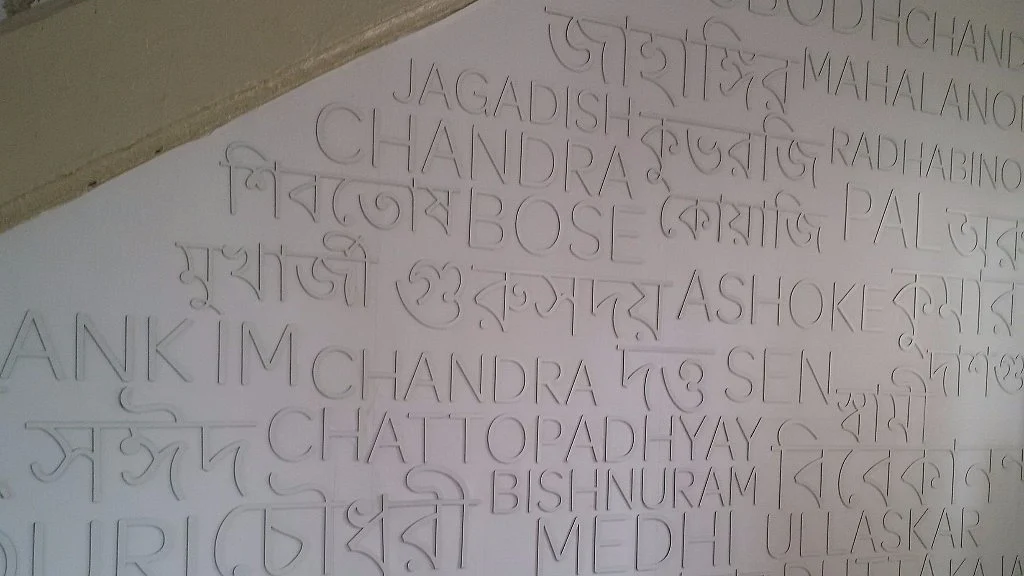 BODHCHAND
জাহাঙ্গির MAHALANO
JAGADISH
CHANDRA কুভরজি RADHABINO
শিবতোষ BOSE কোয়াজি PAL
মুখার্জী গুরুসদয় ASHOKE কুমার
ANKIM CHANDRA দত্ত SEN দাশগু
স্বামী
সঈদ CHATTOPADHYAY বিবেকান
চৌধুরী BISHNURAM
MEDHI ULLASKAR
URI